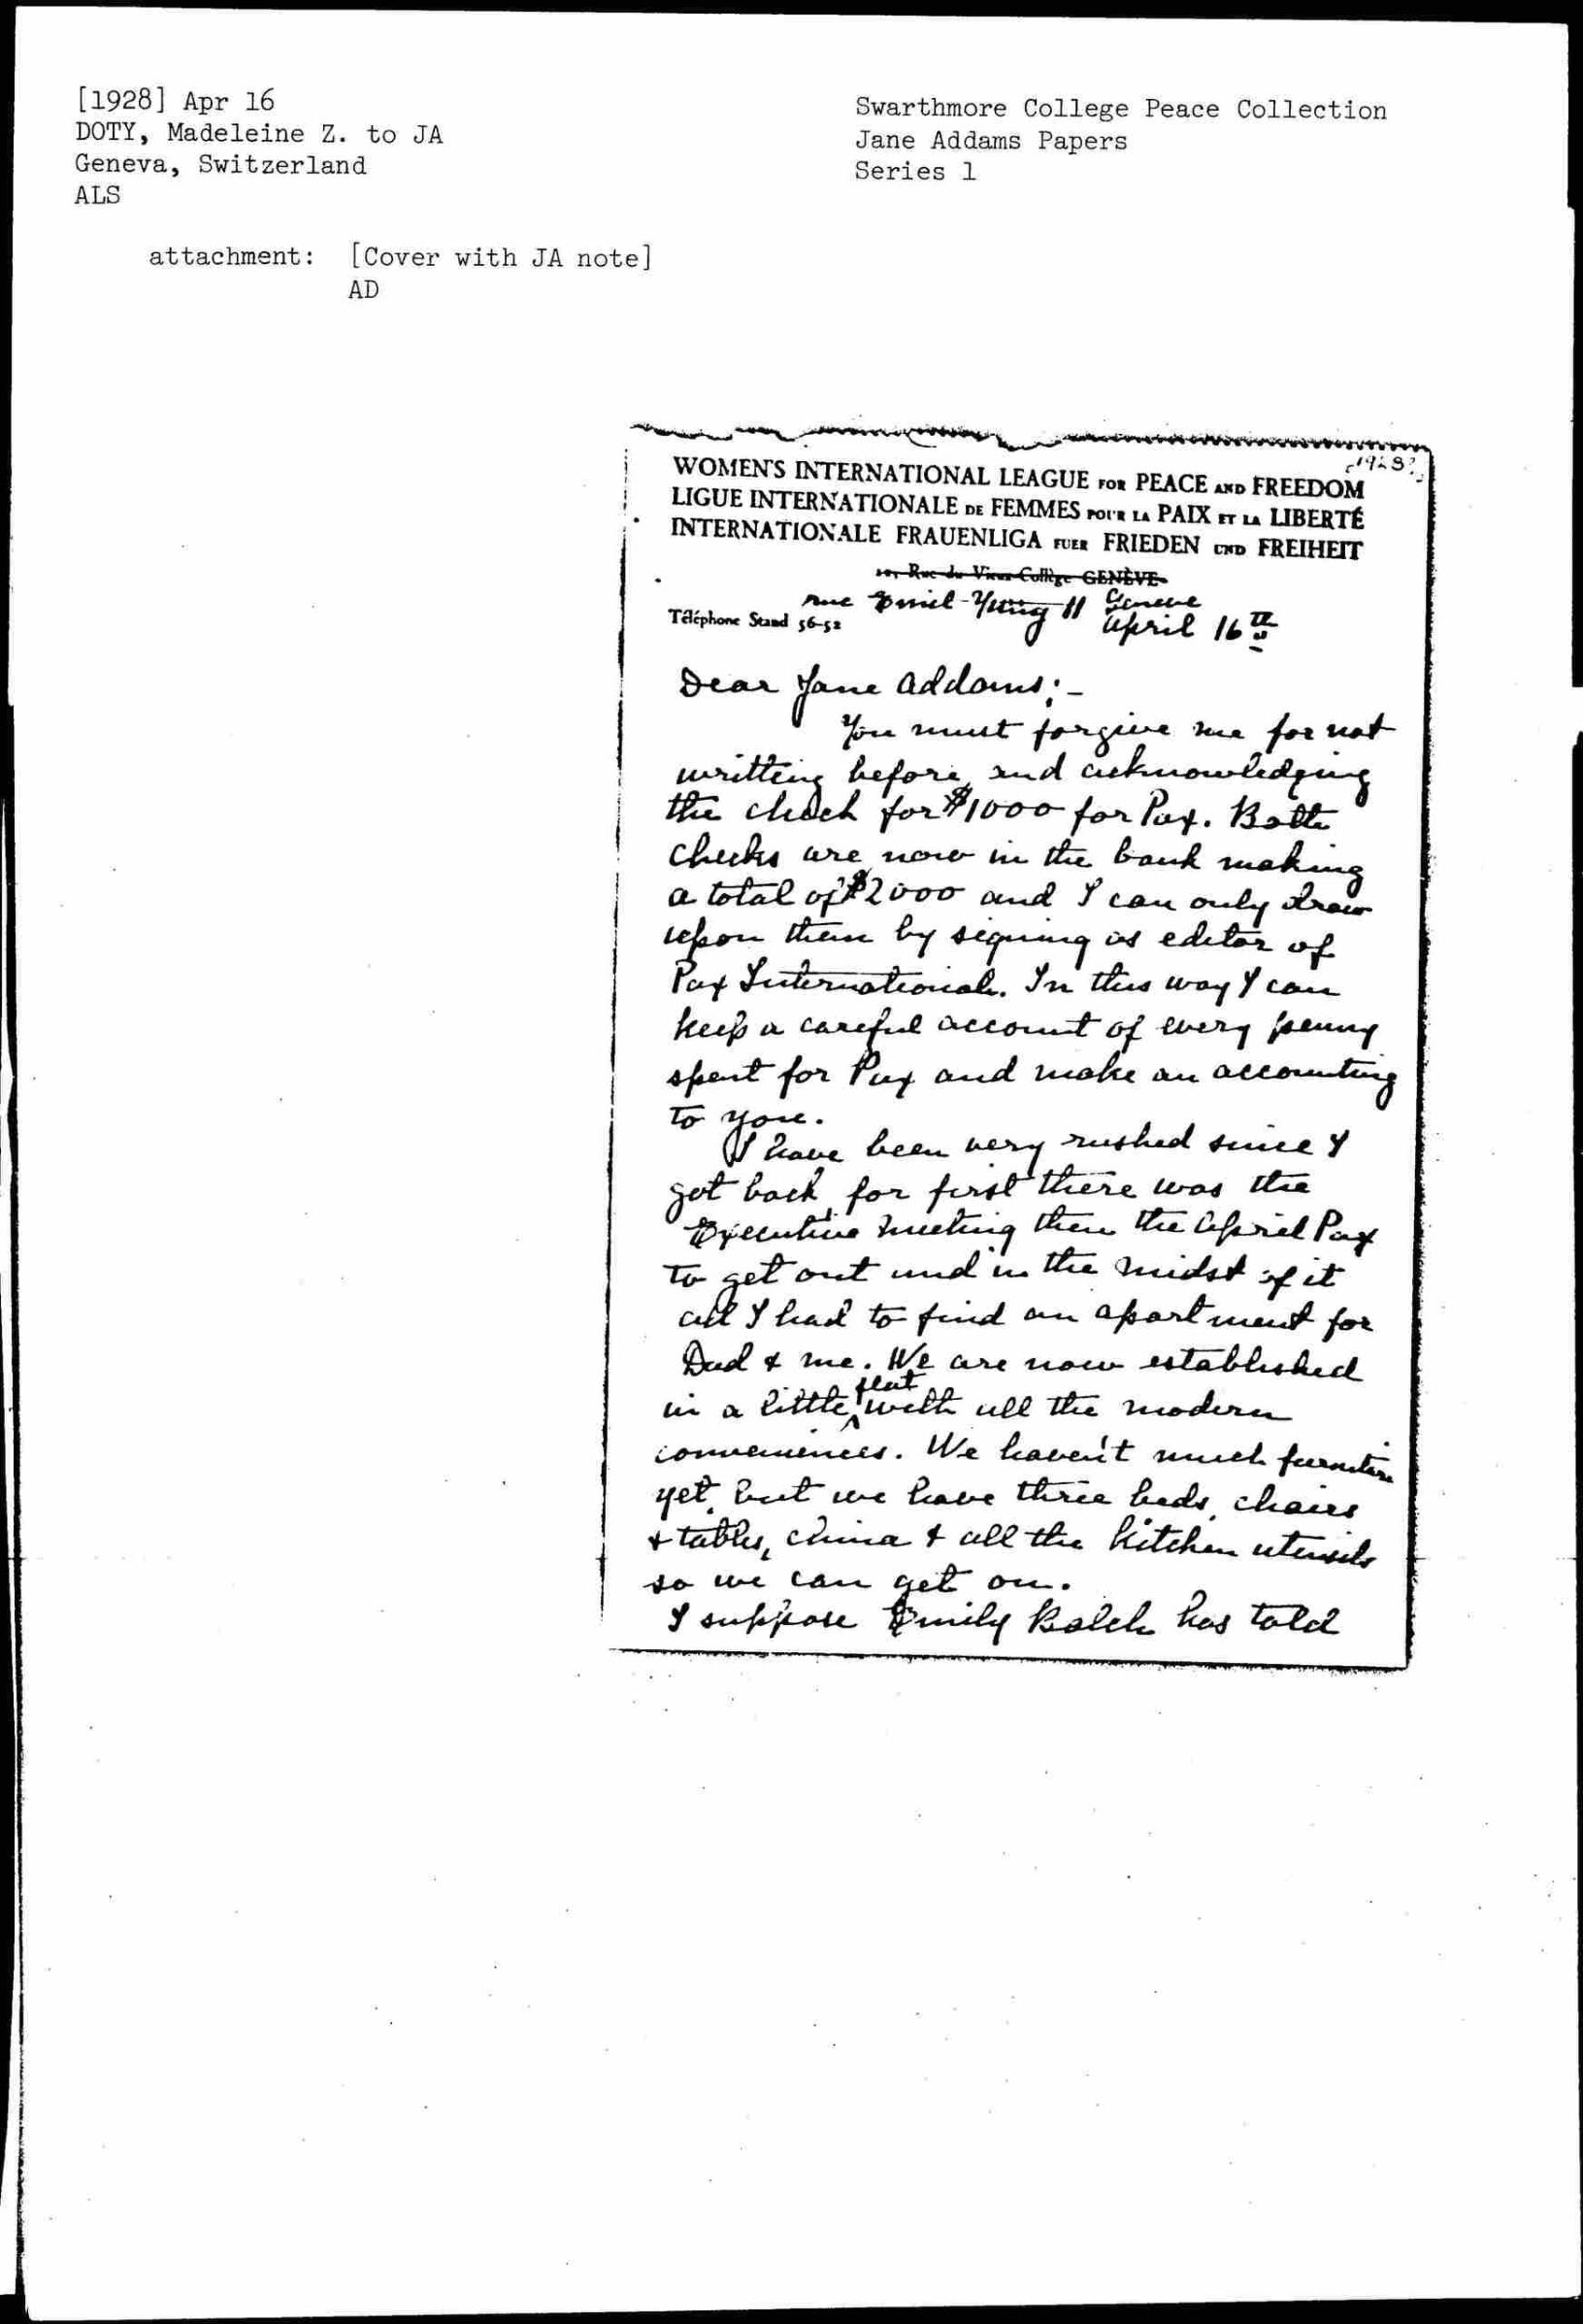 [1928] Apr 16
DOTY, Madeleine Z. to JA
Geneva, Switzerland
ALS
attachment: [Cover with JA note]
AD
Swarthmore College Peace Collection
Jane Addams Papers
Series 1
[1928?]
WOMEN'S INTERNATIONAL LEAGUE FOR PEACE AND FREEDOM
LIGUE INTERNATIONALE DE FEMMES POUR LA PAIX ET LA LIBERTÉ
INTERNATIONALE FRAUENLIGA FUER FRIEDEN UND FREIHEIT
Rue du Vieux-Collège GENÈVE
rue Emil-Yung 11 Geneve
Téléphone Stand 56-52
April 16th
Dear Jane Addams;-
You must forgive me for not
writting before, and acknowledging
the check for $1000 for Pax. Both
checks are now in the bank making
a total of $2000 and I can only draw
upon them by signing as editor of
Pax International. In this way I can
keep a careful account of every penny
spent for Pax and make an accounting
to you.
I have been very rushed since I
got back, for first there was the
Executive meeting then the April Pax
to get out and in the midst of it
all I had to find an apartment for
Dad & me. We are now established
in a little flat with all the modern
conveniences. We haven't much furniture
yet, but we have three beds, chairs
& tables, china & all the kitchen utensils
so we can get on.
I suppose Emily Balch has told